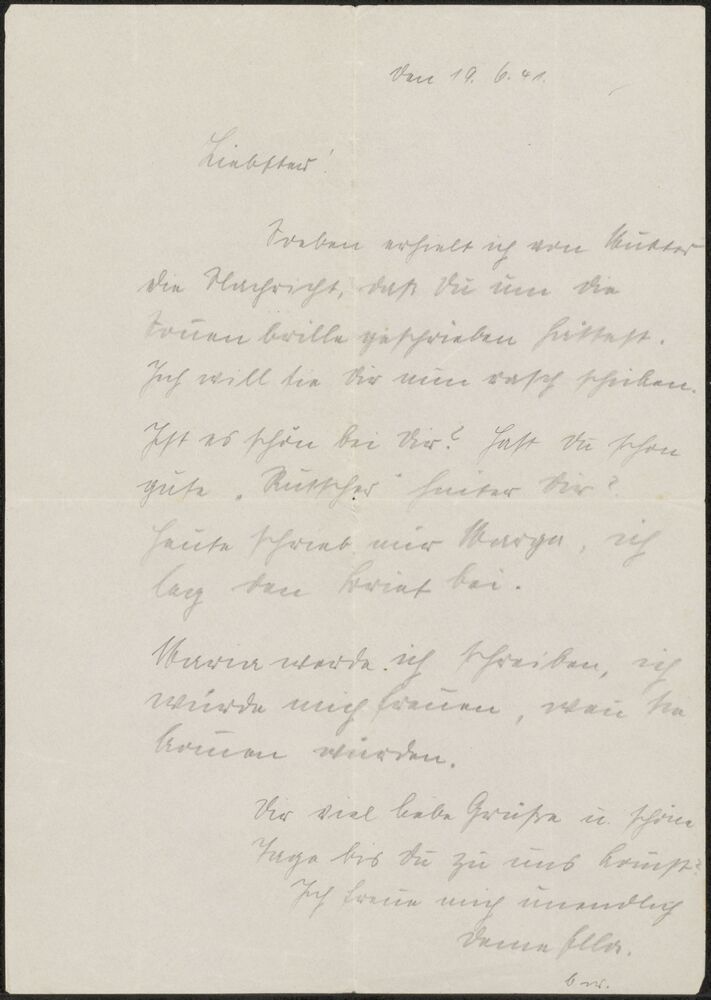 Den 19. 6. 41.
Liebster!
Soeben erhielt ich von Mutter
die Nachricht, daß Du um die
Sonnenbrille geschrieben hättest.
Ich will sie Dir nun rasch schicken.
Ist es schön bei Dir? Hast Du schon
gute „Rutscher" hinter Dir?
Heute schrieb mir Marga, ich
leg den Brief bei.
Maria werde ich schreiben, ich
würde mich freuen, wenn sie
kommen würden.
Dir viel liebe Grüße u. schöne
Tage bis Du zu uns kommst.
Ich freue mich unendlich
Deine Ella.